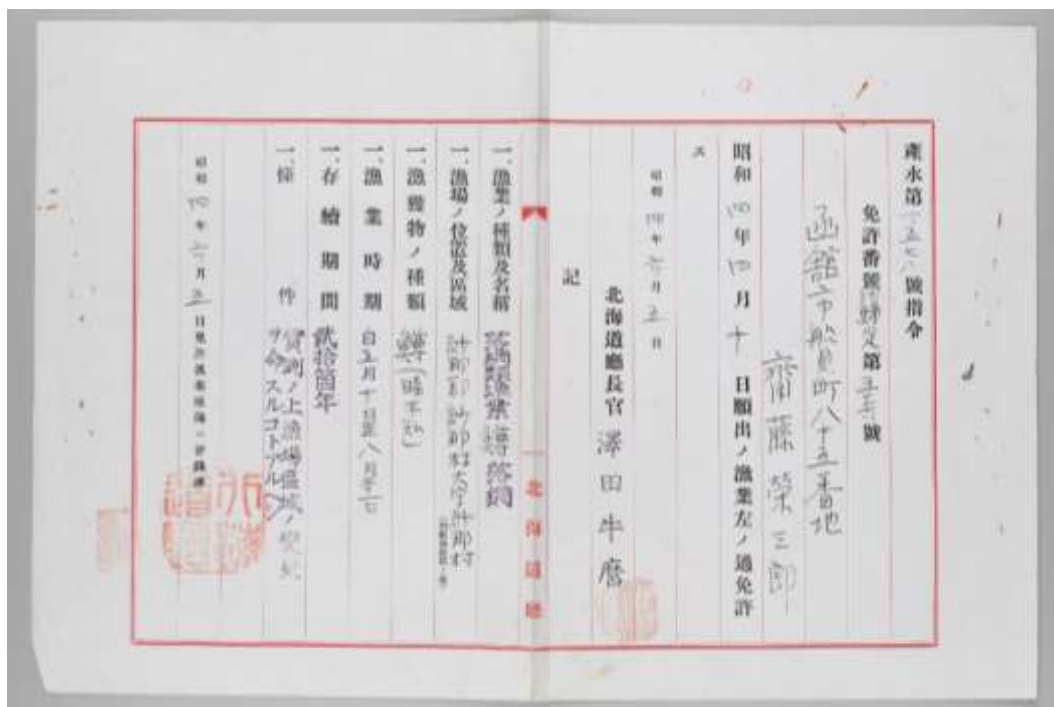 產水第一五七八號指令
免許番號 定第 號
函館市船見町八十五番地
齋藤榮三郎
昭和四年四月十日願出ノ漁業左ノ通免許
ス
昭和四年六月五日
北海道廳長官 澤田牛麿
記
北海道廳
一、漁業ノ種類及名稱 鱒落網
一、漁場ノ位置及區域 斜里郡斜里村大字 村
一、漁獲物ノ種類 鱒
一、漁業時期 自五月十日至八月
一、存續期間 貳拾箇年
一、條件 實測ノ上漁場區域ノ變更
ヲ命スルコトアルヘシ
昭和四年六月五日免許漁業原簿ニ登錄濟